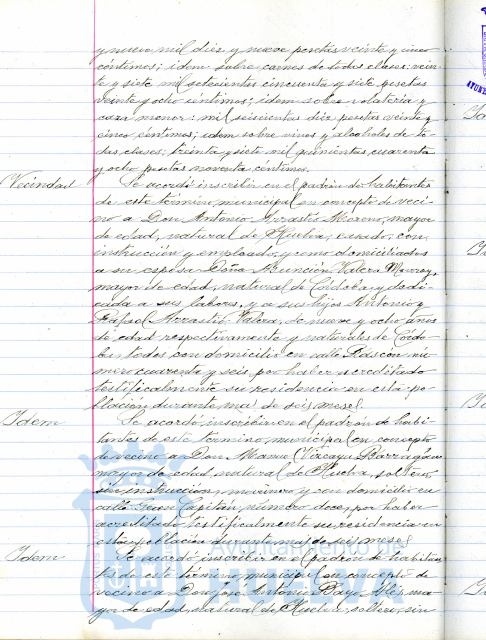 y nueve mil diez y nueve pesetas veinte y cinco
céntimos; idem sobre carnes de todas clases: vein-
te y siete mil setecientas cincuenta y siete pesetas
veinte y ocho céntimos; idem sobre volatería y
caza menor: mil seiscientas diez pesetas veinte y
cinco céntimos; idem sobre vinos y alcoholes de to-
das clases; treinta y siete mil quinientas cuarenta
y ocho pesetas noventa céntimos.
Vecindad
Se acordó inscribir en el padrón de habitantes
de este término municipal en concepto de veci-
no a Don Antonio Arrastio Moreno, mayor
de edad, natural de Huelva, casado, con
instrucción y empleado, y como domiciliados
a su esposa Doña Asunción Valera
mayor de edad, natural de Córdoba, y dedi-
cada a sus labores, y a sus hijos Antonio y
Rafael Arrastio Valera, de nueve y ocho años
de edad respectivamente y naturales de Córdo-
ba, todos con domicilio en calle Rascón nú-
mero cuarenta y seis, por haber acreditado
testificalmente su residencia en esta po-
blación durante mas de seis meses.
Idem
Se acordó inscribir en el padrón de habi-
tantes de este término municipal en concepto
de vecino a Don Manuel Vizcaya
mayor de edad, natural de Huelva, soltero,
sin instrucción, marinero y con domicilio en
calle Gran Capitán, número doce, por haber
acreditado testificalmente su residencia en
esta población durante mas de seis meses.
Idem
Se acordó inscribir en el padrón de habitan-
tes de este término municipal en concepto de
vecino a Don José Antonio Bayo ma-
yor de edad, natural de Huelva, soltero, sin
Ayuntamiento de
HUELVA